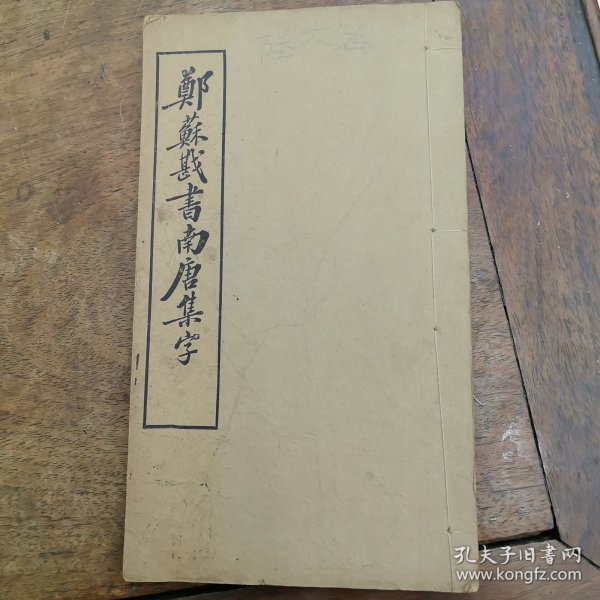 鄭蘇戡書南唐集字
孔夫子旧书网
www.kongfz.com